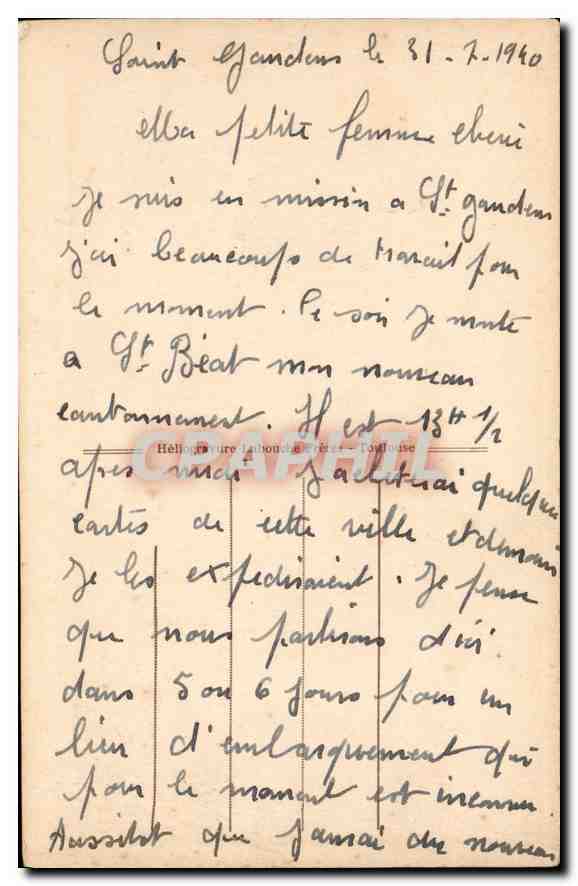 Saint Gaudens le 31-7-1940
Ma petite femme cheri
Je suis en mission a St. gaudens
J'ai beaucoups de travail pour
le moment. Ce soir je monte
a St. Béat mon nouveau
cantonnanest. Il est 13H 1/2
Héliogravure Labouche Frères - Toulouse
CPAPHIL
apres midi J'acheterai quelques
cartes de cette ville et demain
Je les expedisaient. Je pense
que nous partirons d'ici
dans 5 ou 6 jours pour un
lieu d'embarquement qui
pour le moment est inconnu.
Aussitot que J'aurai du nouveau